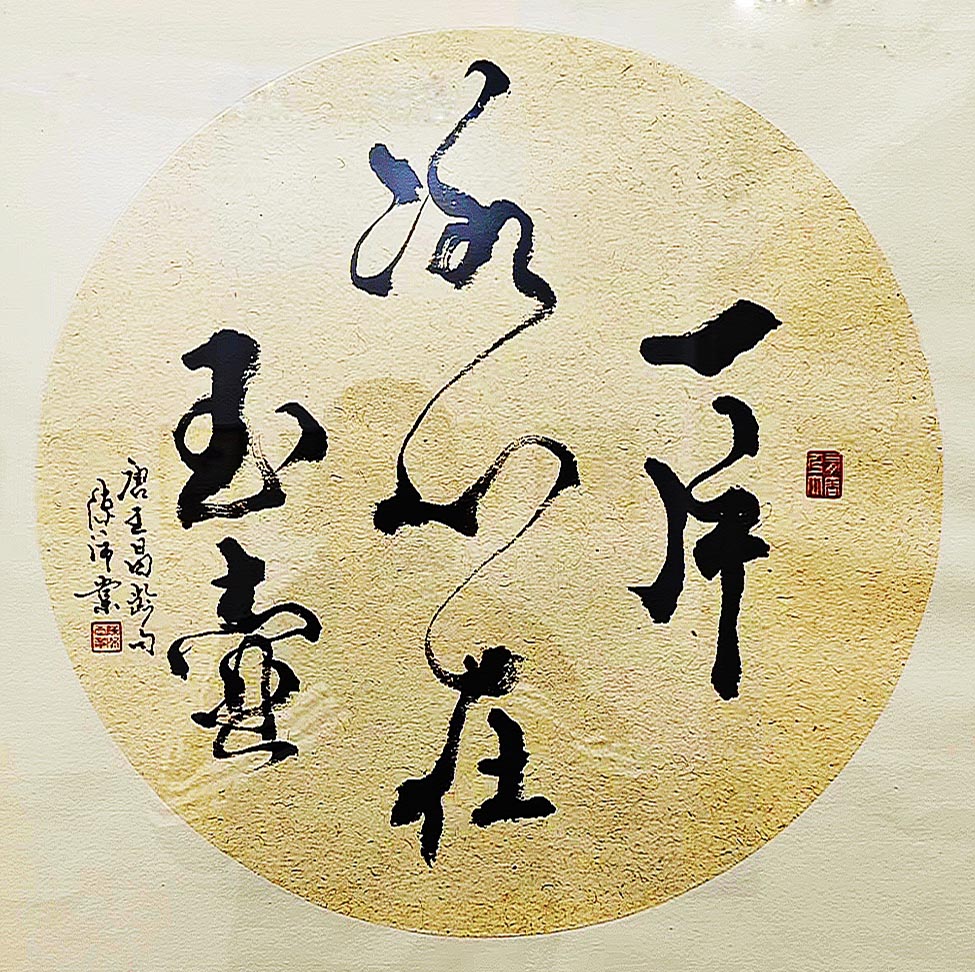 一片
冰心在
玉壶
唐王昌龄句
陈沛业